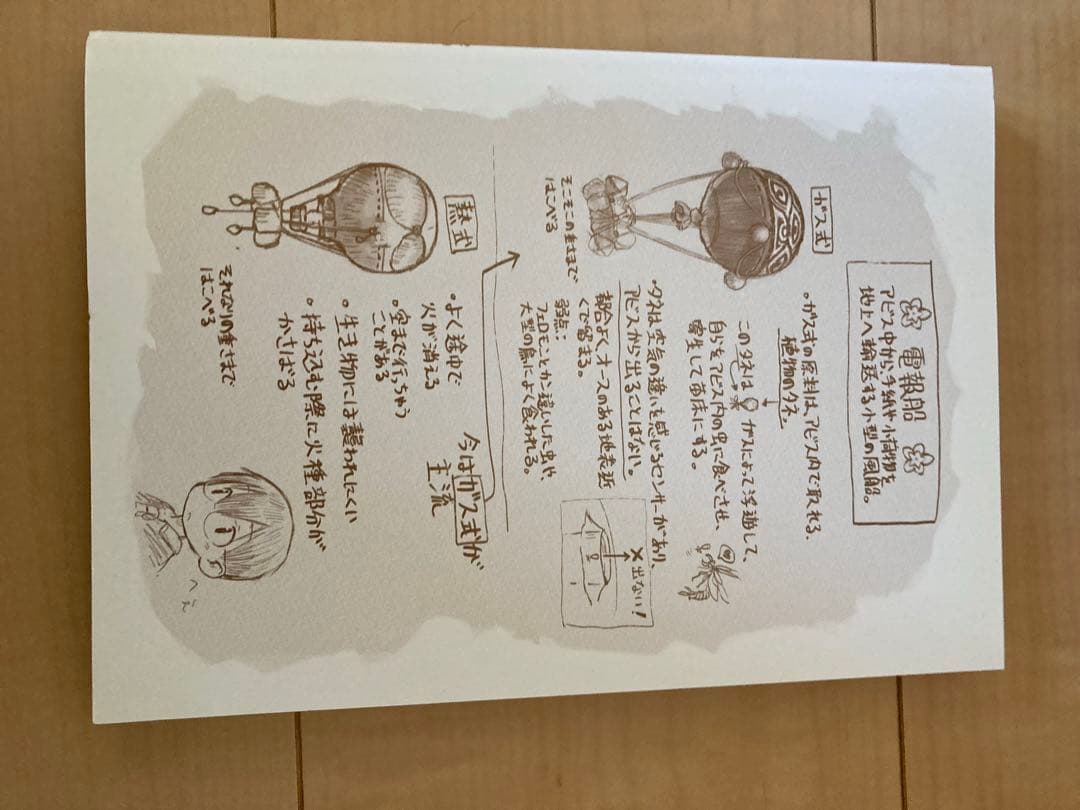 電報船
アビス中から、手紙や小荷物を
地上へ輸送する小型の風船。
ガス式
・ガス式の原料は、アビス内で取れる、
植物のタネ。
このタネは ガスによって浮遊して、
自らをアビス内の虫に食べさせ、
寄生して苗床にする。
・タネは空気の違いを感じるセンサーがあり、
アビスから出ることはない。
都合よく、オースのある地表近
くで留まる。
弱点：
フェロモンとか違いした虫や、
大型の鳥によく食われる。
そこそこの重さまで
はこべる
×出ない！
熱式
・よく途中で
火が消える
・空まで行っちゃう
ことがある
・生き物には襲われにくい
・持ち込む際に火種部分が
かさばる
それなりの重さまで
はこべる
今はガス式が
主流
へぇ